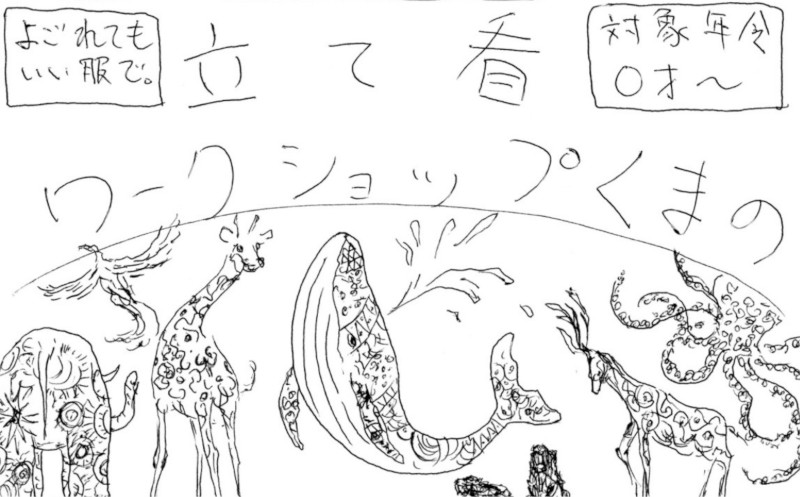 よごれても
いい服で。
立て看
対象年令
0才〜
ワークショップくまの